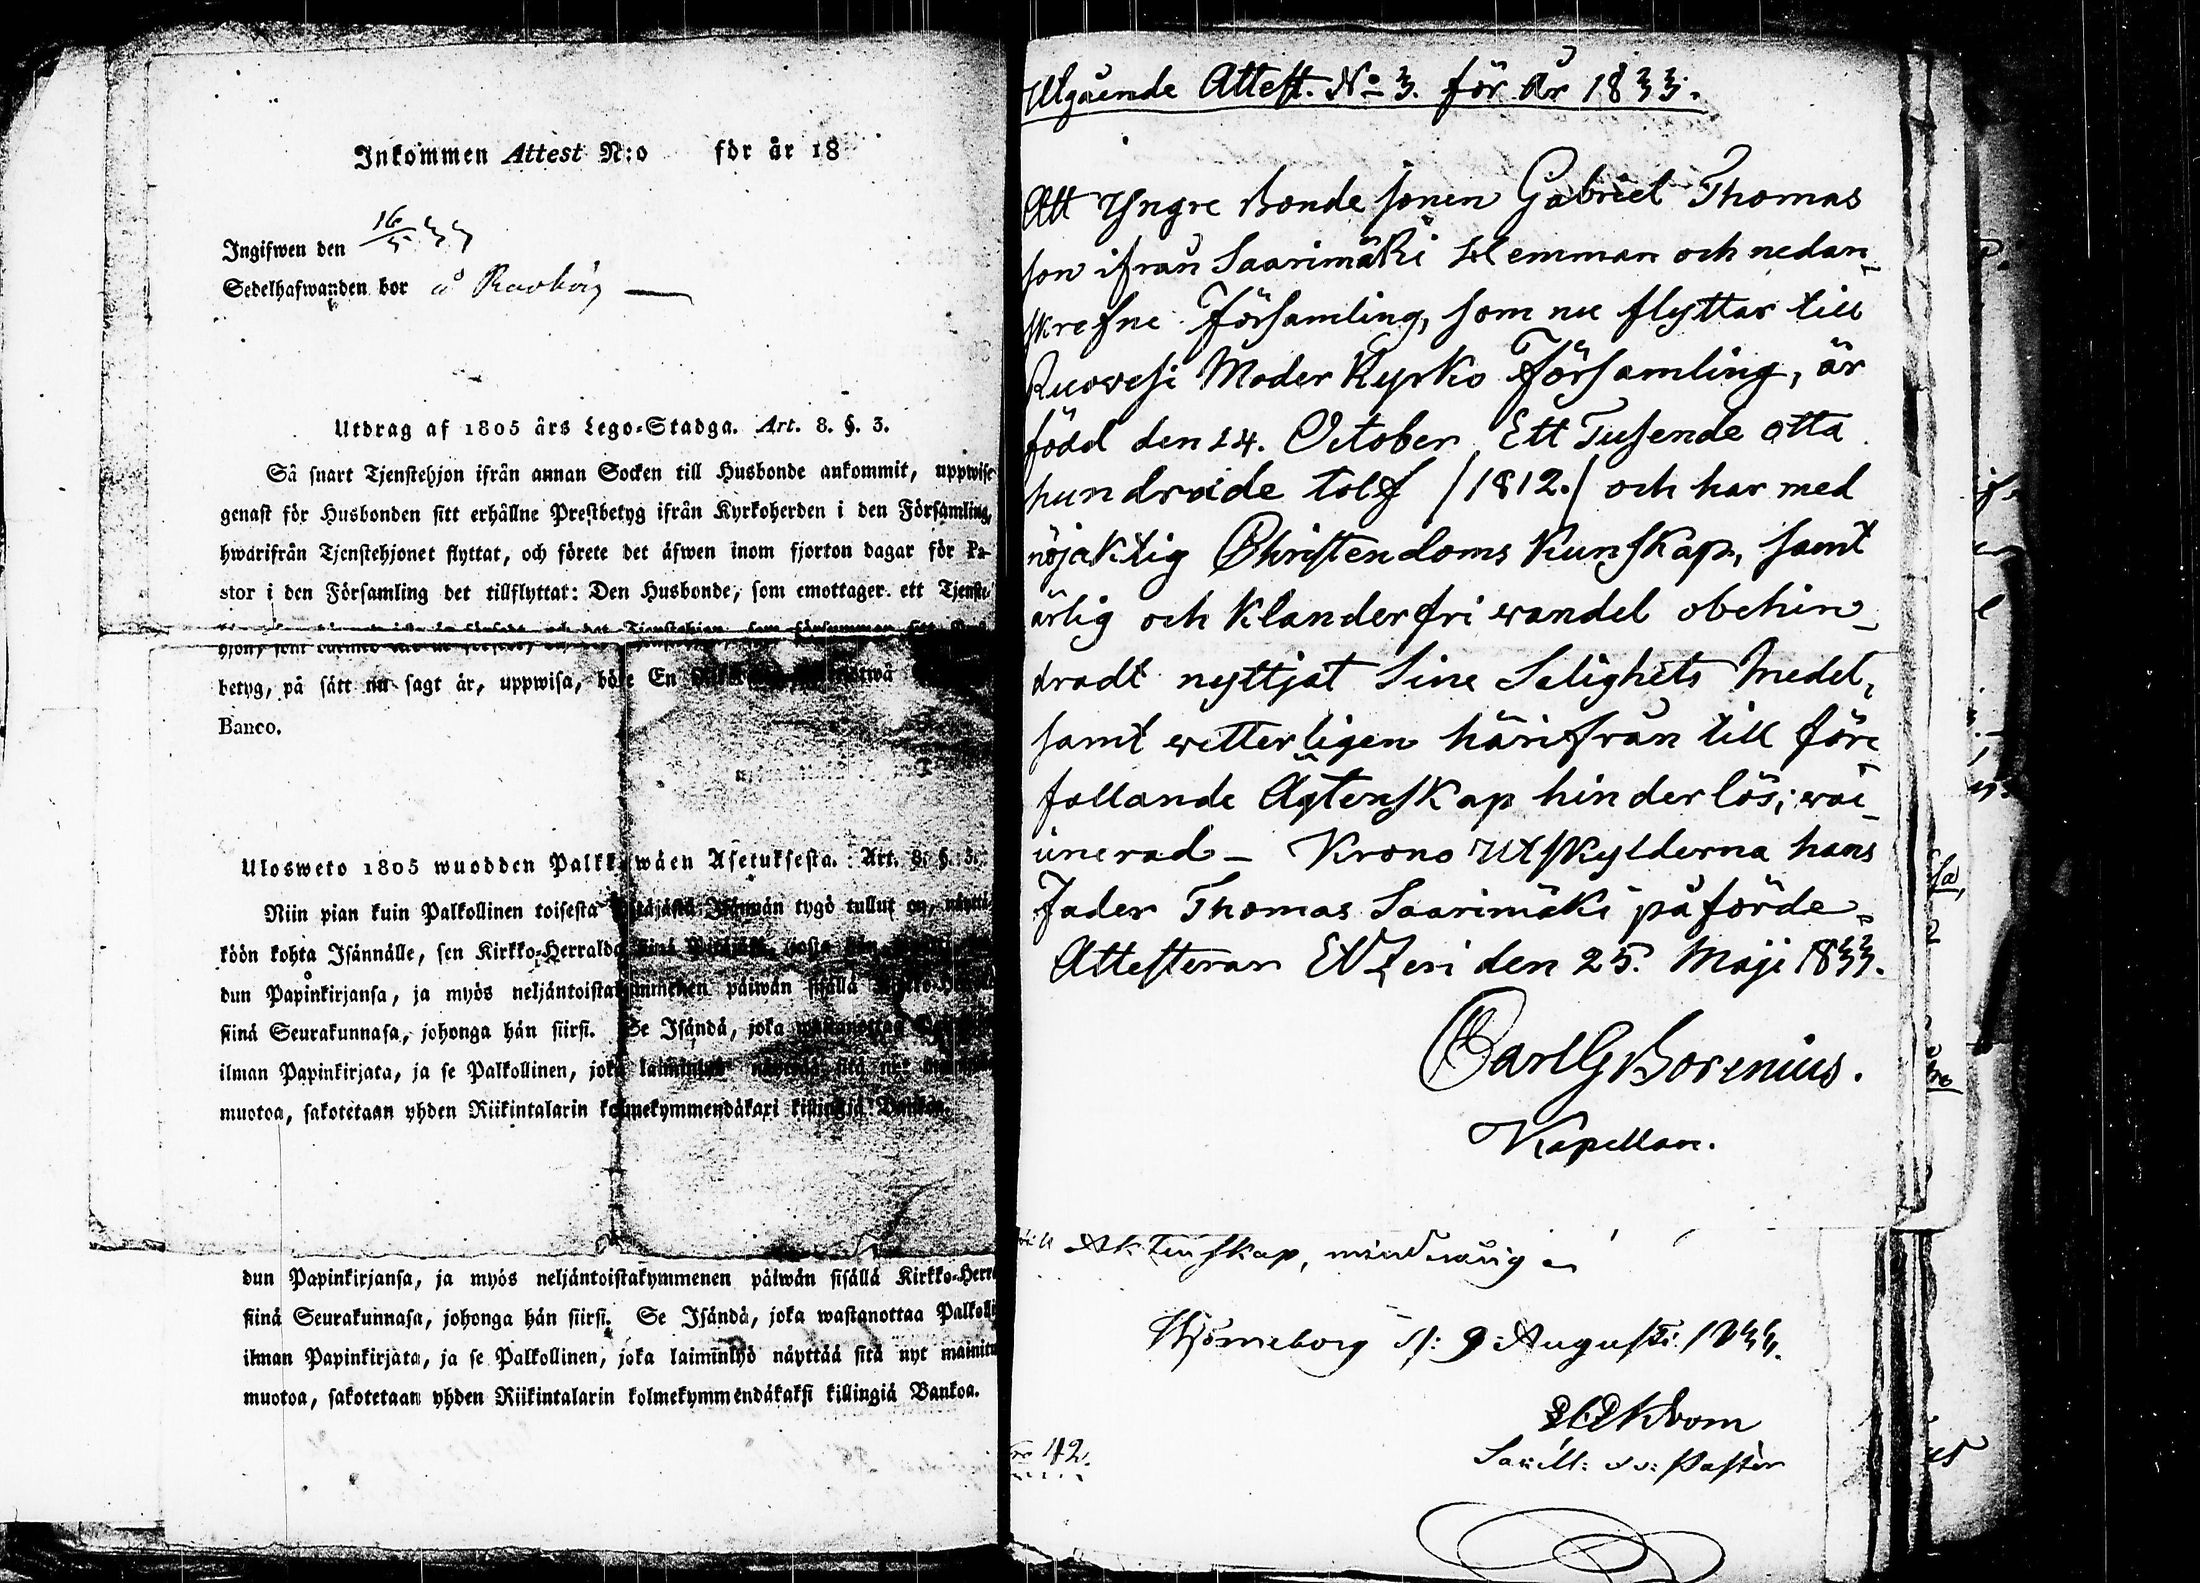 Inkommen Attest N:o för år 18
Ingifwen den 16/5 33
Sedelhafwanden bor å
Utdrag af 1805 års Lego-Stadga. Art. 8. §. 3.
Så snart Tjenstehjon ifrån annan Socken till Husbonde ankommit, uppwise
genast för Husbonden sitt erhållne Prestbetyg ifrån Kyrkoherden i den Församling,
hwarifrån Tjenstehjonet flyttat, och förete det äfwen inom fjorton dagar för Pa-
stor i den Församling det tillflyttat: Den Husbonde, som emottager ett Tjenste-
betyg, på sätt nu sagt är, uppwisa, böte En
Banco.
Ulosweto 1805 wuodden Palkkawäen Asetuksesta. Art. 8. §. 3.
Niin pian kuin Palkollinen toisesta Pitäjästä Isännän tygö tullut on, näyttä-
köön kohta Isännälle, sen Kirkko-Herralda
dun Papinkirjansa, ja myös neljäntoistakymmenen päiwän sisällä
siinä Seurakunnasa, johonga hän siirsi. Se Isändä, joka wastanottaa
ilman Papinkirjata, ja se Palkollinen, joka laiminlyö näyttää sitä nyt
muotoa, sakotetaan yhden Riikintalarin kolmekymmendäkaxi killingiä Bankoa.
dun Papinkirjansa, ja myös neljäntoistakymmenen päiwän sisällä Kirkko-Herra
siinä Seurakunnasa, johonga hän siirsi. Se Isändä, joka wastanottaa Palkolli
ilman Papinkirjata, ja se Palkollinen, joka laiminlyö näyttää sitä nyt mainitu
muotoa, sakotetaan yhden Riikintalarin kolmekymmendäkaksi killingiä Bankoa.
Utgående Attest. No 3. för År 1833.
Att Yngre Bonde sonen Gabriel Thomas
son ifrån Saarimäki Hemman och nedan-
skrefne Församling, som nu flyttar till
Ruovesi Moder Kyrko Församling, är
född den 24. October Ett Tusende åtta
hundrade tolf /1812./ och har med
nöjaktig Christendoms Kunskap, samt
ärlig och klanderfri wandel obehin-
dradt nyttjat Sine Salighets Medel,
samt vetterligen härifrån till före
fallande Ägtenskap hinderlös; vac-
cinerad – Krono Utskylderna hans
Fader Thomas Saarimäki påförde.
Attesterar Etzeri den 25. Maji 1833.
Carl G Borenius.
Kapellan.
till Aktenskap, minderårig
Björneborg d: 9 Augusti 1833.
Pastor
42.